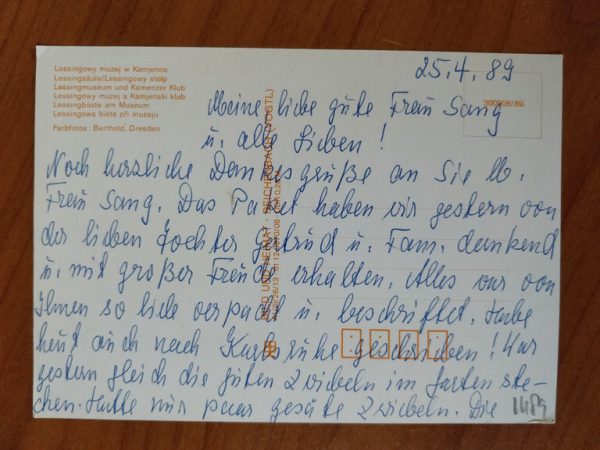 Lessingowy muzej w Kamjencu
Lessingsäule/Lessingowy stołp
Lessingmuseum und Kamenzer Klub
Lessingowy muzej a Kamjenski klub
Lessingbüste am Museum
Lessingowa bista při muzeju
Farbfotos: Berthold, Dresden
25.4.89
300908/89
BILD UND HEIMAT · REICHENBACH (VOGTL)
Meine liebe gute Frau Sang
u. alle Lieben!
Noch herzliche Dankesgrüße an Sie lb.
Frau Sang. Das Paket haben wir gestern von
der lieben Tochter Gertrud u. Fam. dankend
u. mit großer Freude erhalten. Alles war von
Ihnen so lieb verpackt u. beschriftet. Habe
heut auch nach Karlsruhe geschrieben! War
gestern gleich die guten Zwiebeln im Garten ste-
cken. Hatte nur paar gesäte Zwiebeln. Die